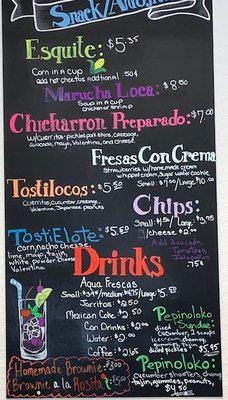 Snack/Antojitos
Esquite: $5.35
Corn in a cup
add hot cheetos additional 150¢
Marucha Loca: $8.50
Soup in a cup
chicken or shrimp
Chicharron Preparado: $7.00
w/cuerritos-pickled port skins, cabbage,
avocado, mayo, Valentina, and cheese!
Fresas Con Crema
Strawberries w/ homemade cream
w/ whipped cream, sugar wafer cookie
Small: $7.00/Large: $10.00
Tostilocos: $5.50
Cuerritos, cucumber, cabbage,
Valentina, Japanese peanuts
Chips:
Small: $1.50/ Large: $2.75
w/cheese $2.00
Add Avocado,
Tomatoes,
Jalapeños
.75¢
TostiElote: $5.50
corn, nacho cheese,
lime, mayo, tajin,
white powder cheese
Valentina
Drinks
Aqua Frescas
Small: $3.45/medium: $4.75/Large: $5.
Jarritos: $2.50
Mexican Coke: $2.50
Can Drinks: $2.00
Water: $2.00
Coffee: $2.65
Pepinoloko
Sundae:
diced
Cucumber, 2 scoops
icecream, chamoy,
diced pickles $5.95
Pepinoloko:
Cucumber, shooters, chamoy,
tajin, gummies, peanuts,
$4.50
Homemade Brownie: $
Brownie a la Rosita: $